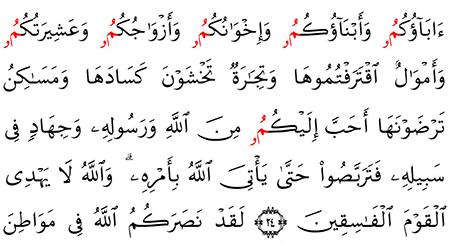 ءَابَآؤُكُمُۥ وَأَبْنَآؤُكُمُۥ وَإِخْوَٰنُكُمُۥ وَأَزْوَٰجُكُمُۥ وَعَشِيرَتُكُمُۥ
وَأَمْوَٰلٌ ٱقْتَرَفْتُمُوهَا وَتِجَٰرَةٌ تَخْشَوْنَ كَسَادَهَا وَمَسَٰكِنُ
تَرْضَوْنَهَا أَحَبَّ إِلَيْكُمُۥ مِنَ ٱللَّهِ وَرَسُولِهِۦ وَجِهَادٍ فِى
سَبِيلِهِۦ فَتَرَبَّصُوا۟ حَتَّىٰ يَأْتِىَ ٱللَّهُ بِأَمْرِهِۦ ۗ وَٱللَّهُ لَا يَهْدِى
ٱلْقَوْمَ ٱلْفَٰسِقِينَ ﴿٢٤﴾ لَقَدْ نَصَرَكُمُ ٱللَّهُ فِى مَوَاطِنَ